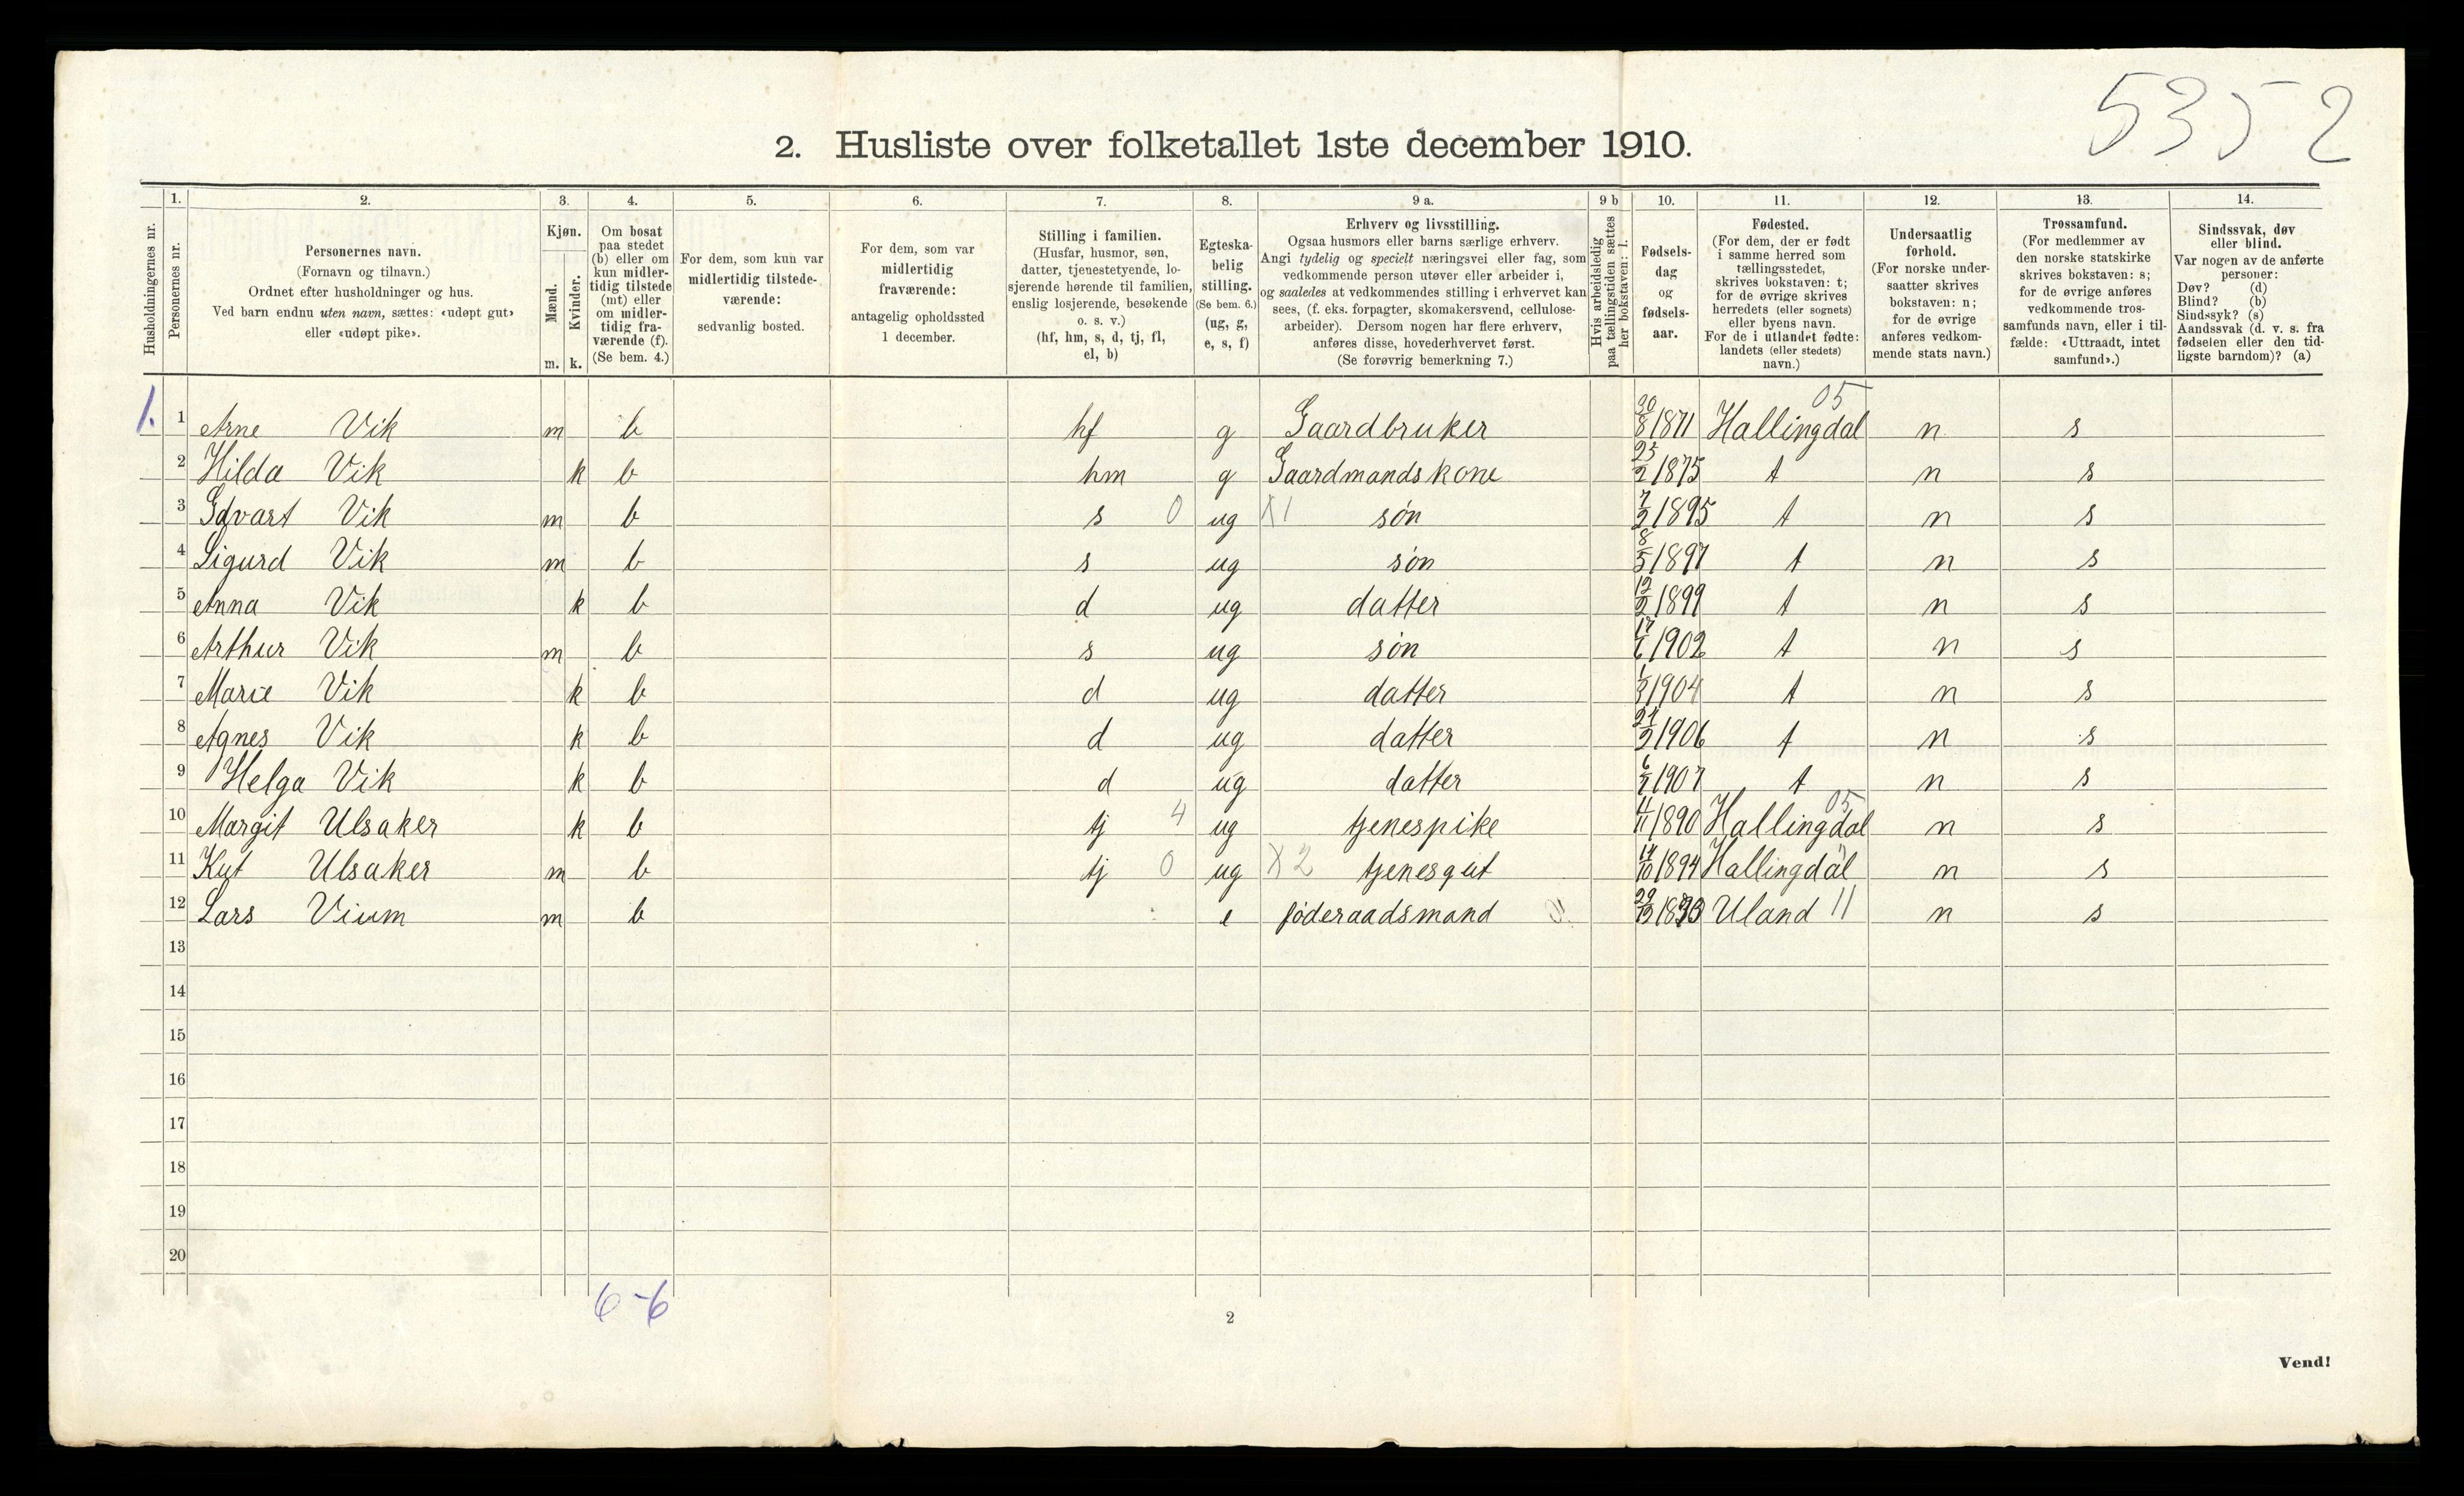 5352
2. Husliste over folketallet 1ste december 1910.
Husholdningernes nr.
1. Personernes nr.
2. Personernes navn. (Fornavn og tilnavn.) Ordnet efter husholdninger og hus. Ved barn endnu uten navn, sættes: «udøpt gut» eller «udøpt pike».
3. Kjøn. Mænd. m. Kvinder. k.
4. Om bosat paa stedet (b) eller om kun midlertidig tilstede (mt) eller om midlertidig fraværende (f). (Se bem. 4.)
5. For dem, som kun var midlertidig tilstedeværende: sedvanlig bosted.
6. For dem, som var midlertidig fraværende: antagelig opholdssted 1 december.
7. Stilling i familien. (Husfar, husmor, søn, datter, tjenestetyende, losjerende hørende til familien, enslig losjerende, besøkende o. s. v.) (hf, hm, s, d, tj, fl, el, b)
8. Egteskabelig stilling. (Se bem. 6.) (ug, g, e, s, f)
9 a. Erhverv og livsstilling. Ogsaa husmors eller barns særlige erhverv. Angi tydelig og specielt næringsvei eller fag, som vedkommende person utøver eller arbeider i, og saaledes at vedkommendes stilling i erhvervet kan sees, (f. eks. forpagter, skomakersvend, cellulosearbeider). Dersom nogen har flere erhverv, anføres disse, hovederhvervet først. (Se forøvrig bemerkning 7.)
9 b Hvis arbeidsledig paa tællingstiden sættes her bokstaven: l.
10. Fødselsdag og fødselsaar.
11. Fødested. (For dem, der er født i samme herred som tællingsstedet, skrives bokstaven: t; for de øvrige skrives herredets (eller sognets) eller byens navn. For de i utlandet fødte: landets (eller stedets) navn.)
12. Undersaatlig forhold. (For norske undersaatter skrives bokstaven: n; for de øvrige anføres vedkommende stats navn.)
13. Trossamfund. (For medlemmer av den norske statskirke skrives bokstaven: s; for de øvrige anføres vedkommende trossamfunds navn, eller i tilfælde: «Uttraadt, intet samfund».)
14. Sindssvak, døv eller blind. Var nogen av de anførte personer: Døv? (d) Blind? (b) Sindssyk? (s) Aandssvak (d. v. s. fra fødselen eller den tidligste barndom)? (a)
1. 1 Arne Vik m b hf g Gaardbruker 30/8 1871 Hallingdal 05 n s
2 Hilda Vik k b hm g Gaardmandskone 25/2 1875 t n s
3 Edvart Vik m b s 0 ug X1 søn 7/2 1895 t n s
4 Sigurd Vik m b s ug søn 8/5 1897 t n s
5 Anna Vik k b d ug datter 12/2 1899 t n s
6 Arthur Vik m b s ug søn 17/6 1902 t n s
7 Marie Vik k b d ug datter 1904 t n s
8 Agnes Vik k b d ug datter 1906 t n s
9 Helga Vik k b d ug datter 1907 t n s
10 Margit Ulsaker k b tj 4 ug tjenespike 11/11 1890 Hallingdal 05 n s
11 Kut Ulsaker m b tj 0 ug X2 tjenesgut 14/10 1894 Hallingdal n s
12 Lars Vium m b e føderaadsmand 29/12 Uland 11 n s
13
14
15
16
17
18
19
20
6-6
2
Vend!